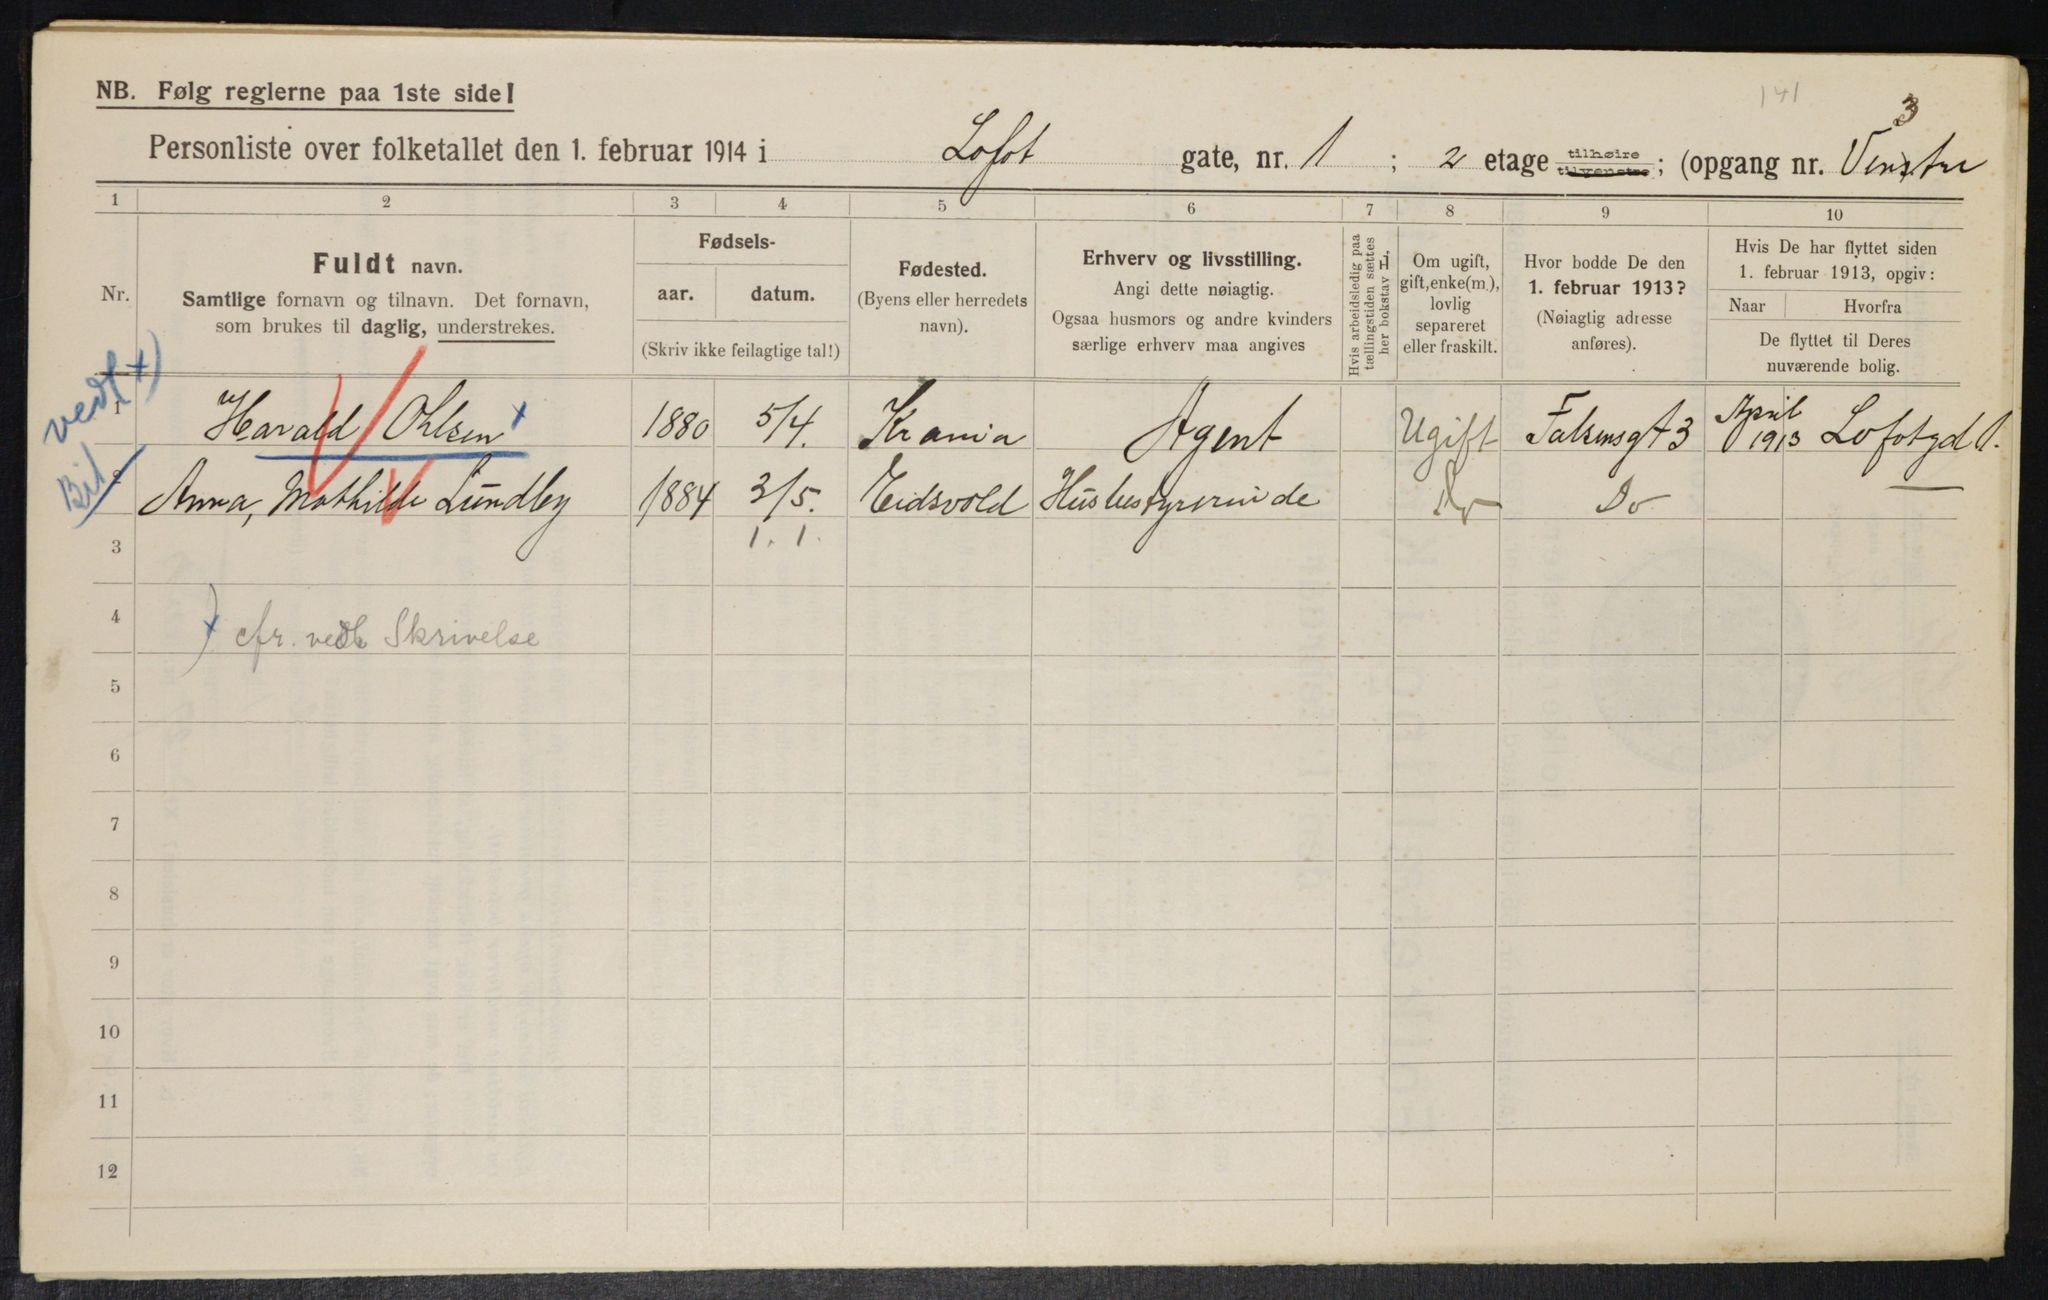 141
NB. Følg reglerne paa 1ste side!
3
Personliste over folketallet den 1. februar 1914 i Lofot gate, nr. 1 ; 2 etage tilhøire tilvenstre ; (opgang nr. Venstre
1 2 3 4 5 6 7 8 9 10
Nr.
Fuldt navn.
Samtlige fornavn og tilnavn. Det fornavn,
som brukes til daglig, understrekes.
Fødsels-
aar. datum.
(Skriv ikke feilagtige tal!)
Fødested.
(Byens eller herredets
navn).
Erhverv og livsstilling.
Angi dette nøiagtig.
Ogsaa husmors og andre kvinders
særlige erhverv maa angives
Hvis arbeidsledig paa
tællingstiden sættes
her bokstav L.
Om ugift,
gift, enke(m.),
lovlig
separeret
eller fraskilt.
Hvor bodde De den
1. februar 1913?
(Nøiagtig adresse
anføres).
Hvis De har flyttet siden
1. februar 1913, opgiv:
Naar Hvorfra
De flyttet til Deres
nuværende bolig.
vedl x)
1 Harald Ohlsen x 1880 5/4. Krania Agent Ugift Falsensgt 3 April 1913 Lofotgd 1.
Bil
2 Anna, Mathilde Lundby 1884 3/5. Eidsvold Husbestyrerinde Do Do
3 1. 1.
4 x) cfr. vedl Skrivelse
5
6
7
8
9
10
11
12